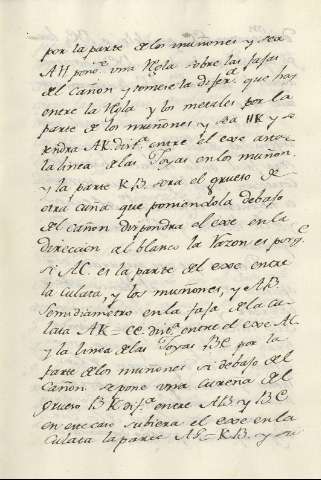 por la parte de los muñones y sea
AH ponse. una Regla sobre las fajas
del cañon y tomese la difera. que hay
entre la Regla y los metales por la
parte de los muñones y sea HK y se
tendra AK difa. entre el exe antes
la linea de las Joyas en los muñon.
y la parte KB sera el grueso de
otra cuña que poniendola debajo
del cañon dispondra el exe en la
direccion al blanco la razon es porqe
si AC. es la parte del exe entre
la culata, y los muñones, y AB.
Semidiametro en la faja de la cu-
lata AK=CE. difa. entre el exe AC
y la linea de las Joyas BE por la
parte de los muñones si debajo del
cañon se pone una cureña del
grueso BK difa. entre AB y BE
en este caso subiera el exe en la
culata la parte AF=KB. y si